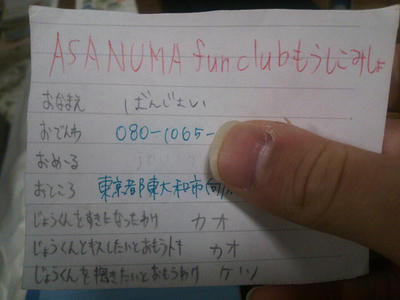 ASANUMA fun clubもうしこみしょ
おなまえ ばんじょい
おでんわ 080-1065-
おめーる
おところ 東京都東大和市
じょうくんをすきになったわけ カオ
じょうくんとキスしたいとおもうトキ カオ
じょうくんを抱きたいとおもうわけ ケツ